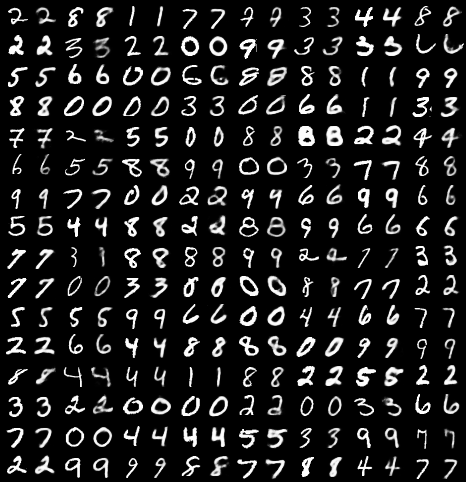 2 2 8 8 1 1 7 7 7 7 3 3 4 4 8 8
2 2 3 3 2 2 0 0 9 9 3 3 3 3 6 6
5 5 6 6 0 0 6 6 8 8 8 8 1 1 9 9
8 8 0 0 0 0 3 3 0 0 6 6 1 1 3 3
7 7 2 2 5 5 0 0 8 8 8 8 2 2 4 4
6 6 5 5 8 8 9 9 0 0 3 3 7 7 8 8
9 9 7 7 0 0 2 2 9 9 6 6 9 9 6 6
5 5 4 4 8 8 2 2 8 8 9 9 6 6 6 6
7 7 3 1 8 8 8 8 9 9 2 2 7 7 3 3
7 7 0 0 3 3 8 8 0 0 8 8 7 7 2 2
5 5 5 5 9 9 6 6 0 0 4 4 6 6 7 7
2 2 6 6 4 4 8 8 8 8 0 0 9 9 9 9
8 8 4 4 4 4 1 1 8 8 2 2 5 5 2 2
3 3 2 2 0 0 0 0 2 2 0 0 3 3 6 6
7 7 0 0 4 4 4 4 5 5 3 3 9 9 7 7
2 2 9 9 9 9 8 8 7 7 8 8 4 4 7 7